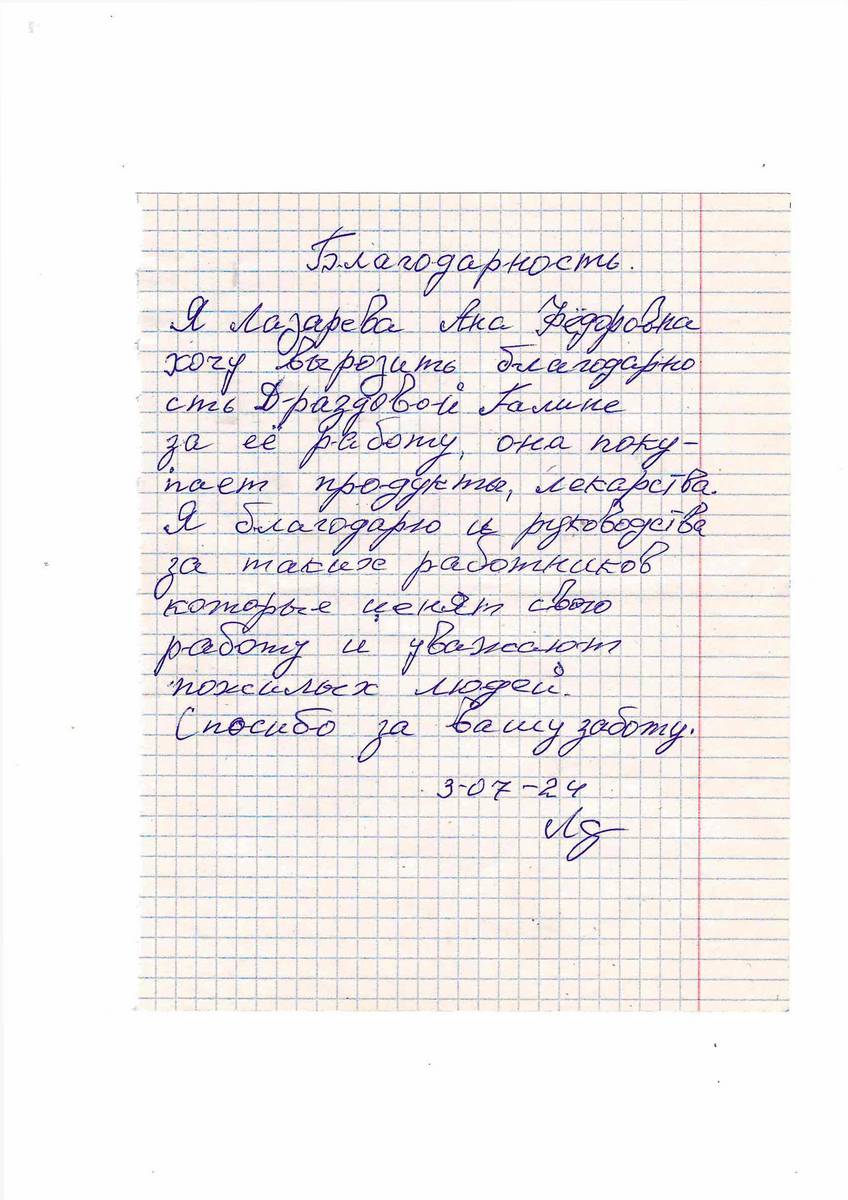 Благодарность.
Я Лазарева Ана Фёдоровна
хочу вырозить благодарно
сть Драздовой Галине
за её работу, она поку-
пает продукты, лекарства.
Я благодарю и руководства
за таких работников
которые ценят свою
работу и уважают
пожилых людей.
Спосибо за вашу заботу.
3-07-24